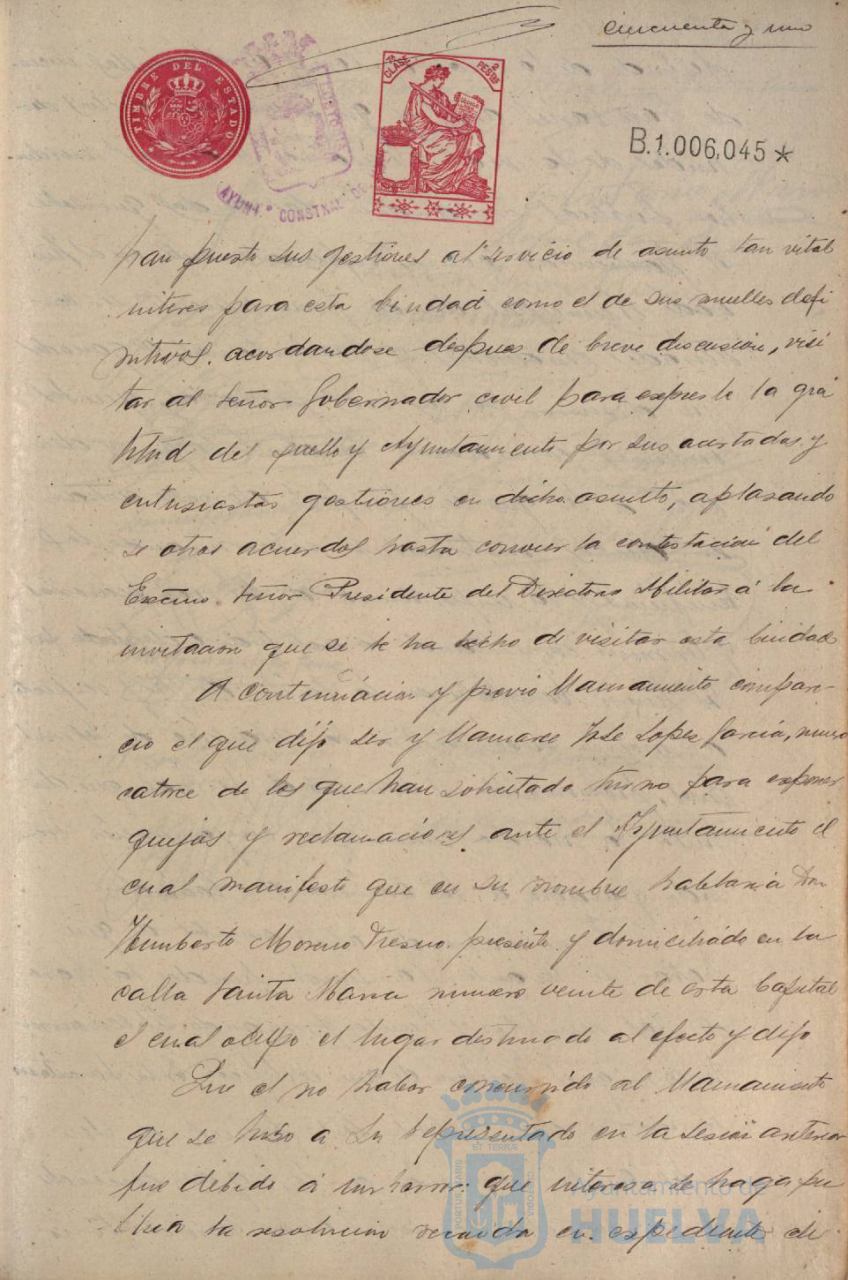 cincuenta y uno
TIMBRE DEL ESTADO
7ª CLASE 2 PESETAS
AYUNTº CONSTNAL DE
B.1.006,045 *
han puesto sus gestiones al servicio de asunto tan vital
interes para esta Ciudad como el de sus muelles defi
nitivos. acordandose despues de breve discusion, visi
tar al señor Gobernador civil para expresarle la gra
titud del pueblo y Ayuntamiento por sus acertadas y
entusiastas gestiones en dicho asunto, aplasando
se otros acuerdos hasta conocer la contestación del
Excmo. Señor Presidente del Directorio Militar á la
invitacion que se le ha hecho de visitar esta Ciudad
A continuacion y previo llamamiento compare-
cio el que dijo ser y llamarse José Lopez Garcia, numero
catorce de los que han solicitado turno para exponer
quejas y reclamaciones ante el Ayuntamiento el
cual manifesto que en su nombre hablaria Don
Humberto Moreno presente y domiciliado en la
calle Santa Maria numero veinte de esta Capital
el cual ocupo el lugar destinado al efecto y dijo
Que el no haber concurrido al llamamiento
que se hizo a su representado en la sesion anterior
fue debido á un error: que interesa se haga pu
blica la resolucion recaida en expediente de
Ayuntamiento de
HUELVA